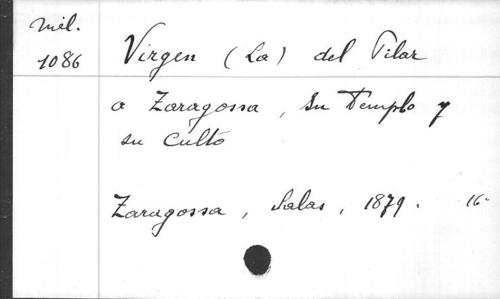 Mil.
1086
Virgen (La) del Pilar
a Zaragossa, Su Templo y
su Culto
Zaragossa, Salas, 1879. 16-